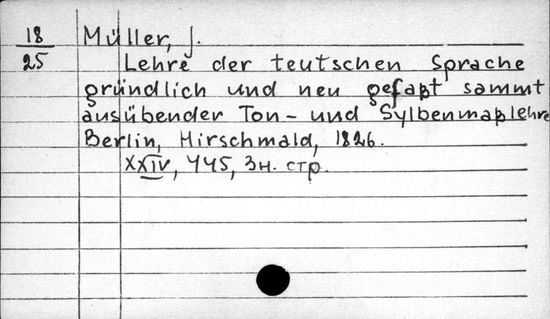 18
25
Müller, J.
Lehre der teutschen Sprache
gründlich und neu gefaßt sammt
ausübender Ton- und Sylbenmaßlehre
Berlin, Hirschwald, 1826.
XXIV, 445, 3н. стр.